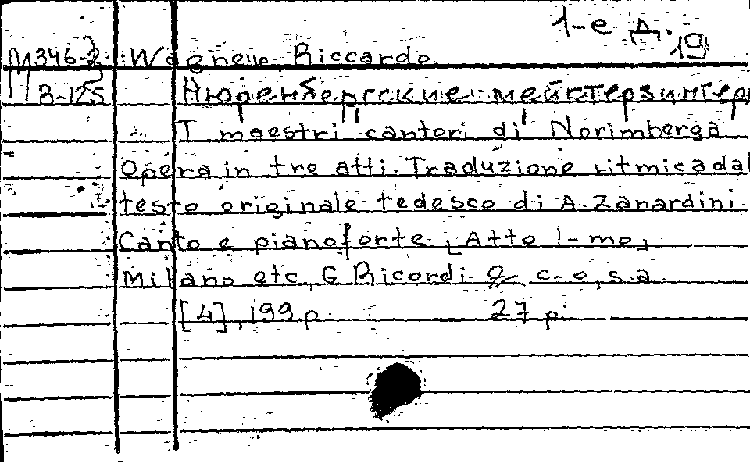 1-е д.
19
М346-3 Wagner Riccardo
3-125 Нюренбергские мейстерзингер
I maestri cantori di Norimberga
Opera in tre atti. Traduzione ritmica dal
testo originale tedesco di A. Zanardini.
Canto e pianoforte. [Atto I-mo]
Milano etc, G Ricordi & c-o, s.a.
[4], 199 p. 27 р.